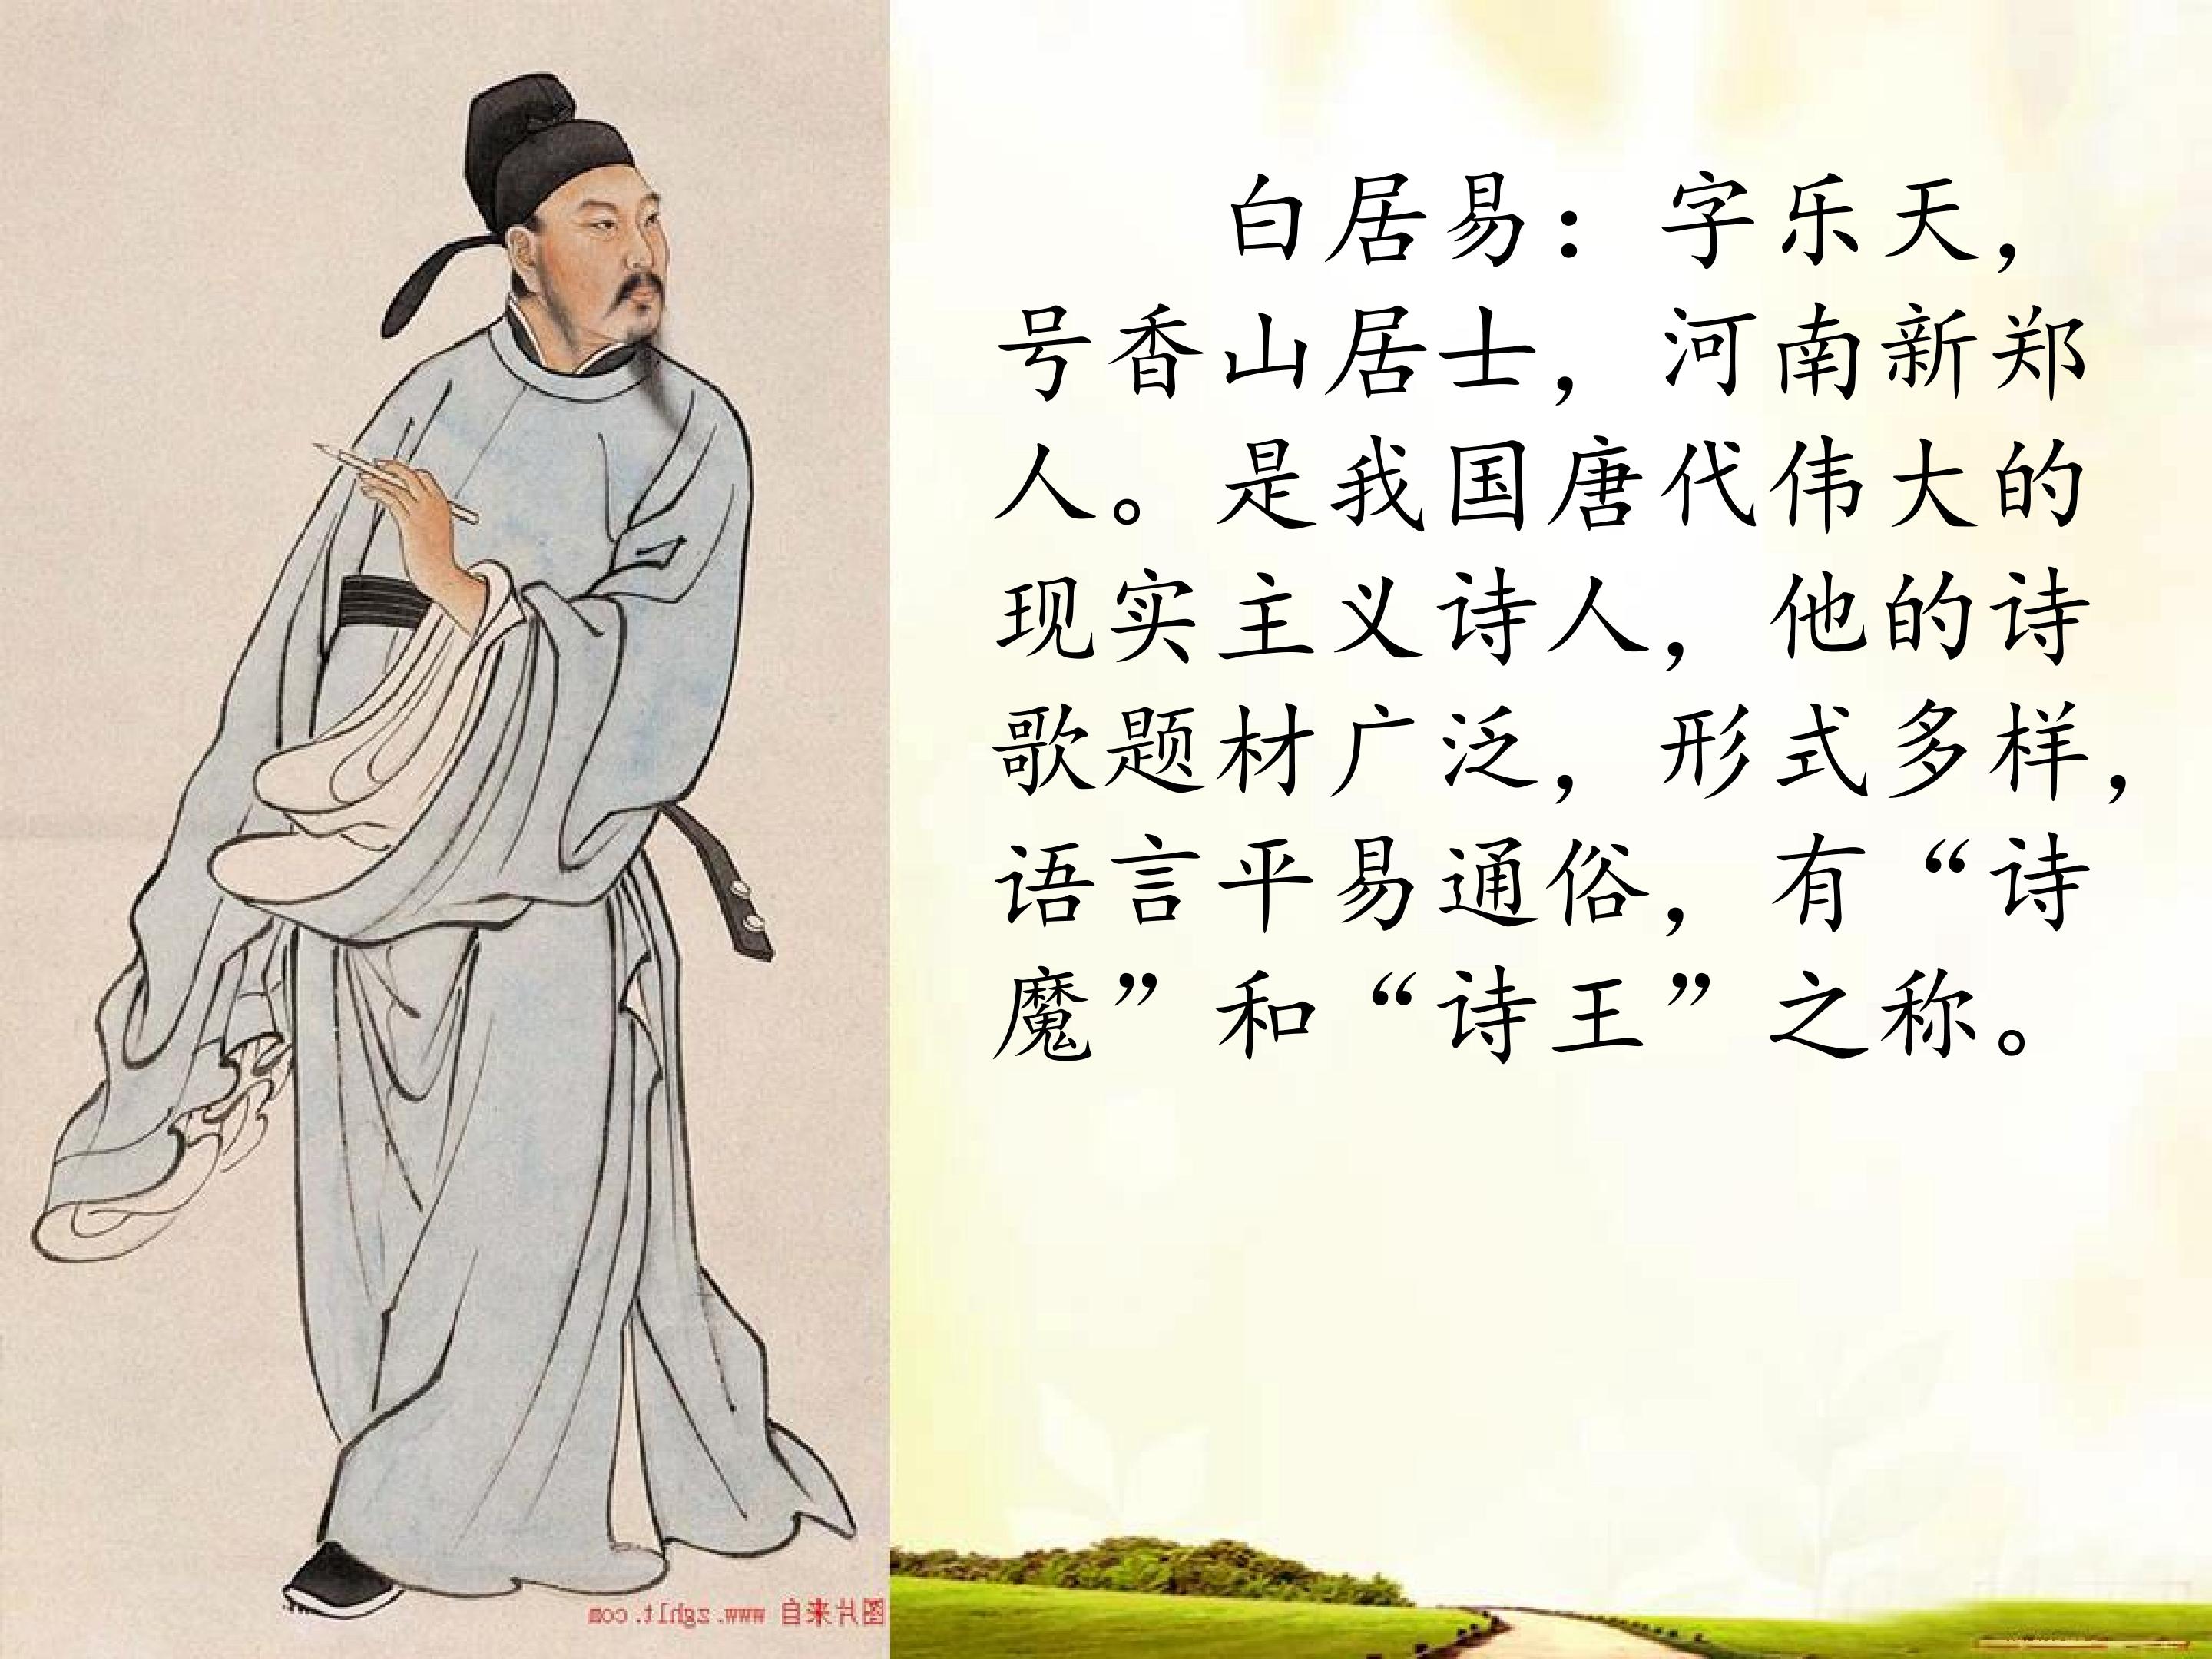 白居易：字乐天，
号香山居士，河南新郑
人。是我国唐代伟大的
现实主义诗人，他的诗
歌题材广泛，形式多样，
语言平易通俗，有“诗
魔”和“诗王”之称。
图片来自 www.zghlt.com